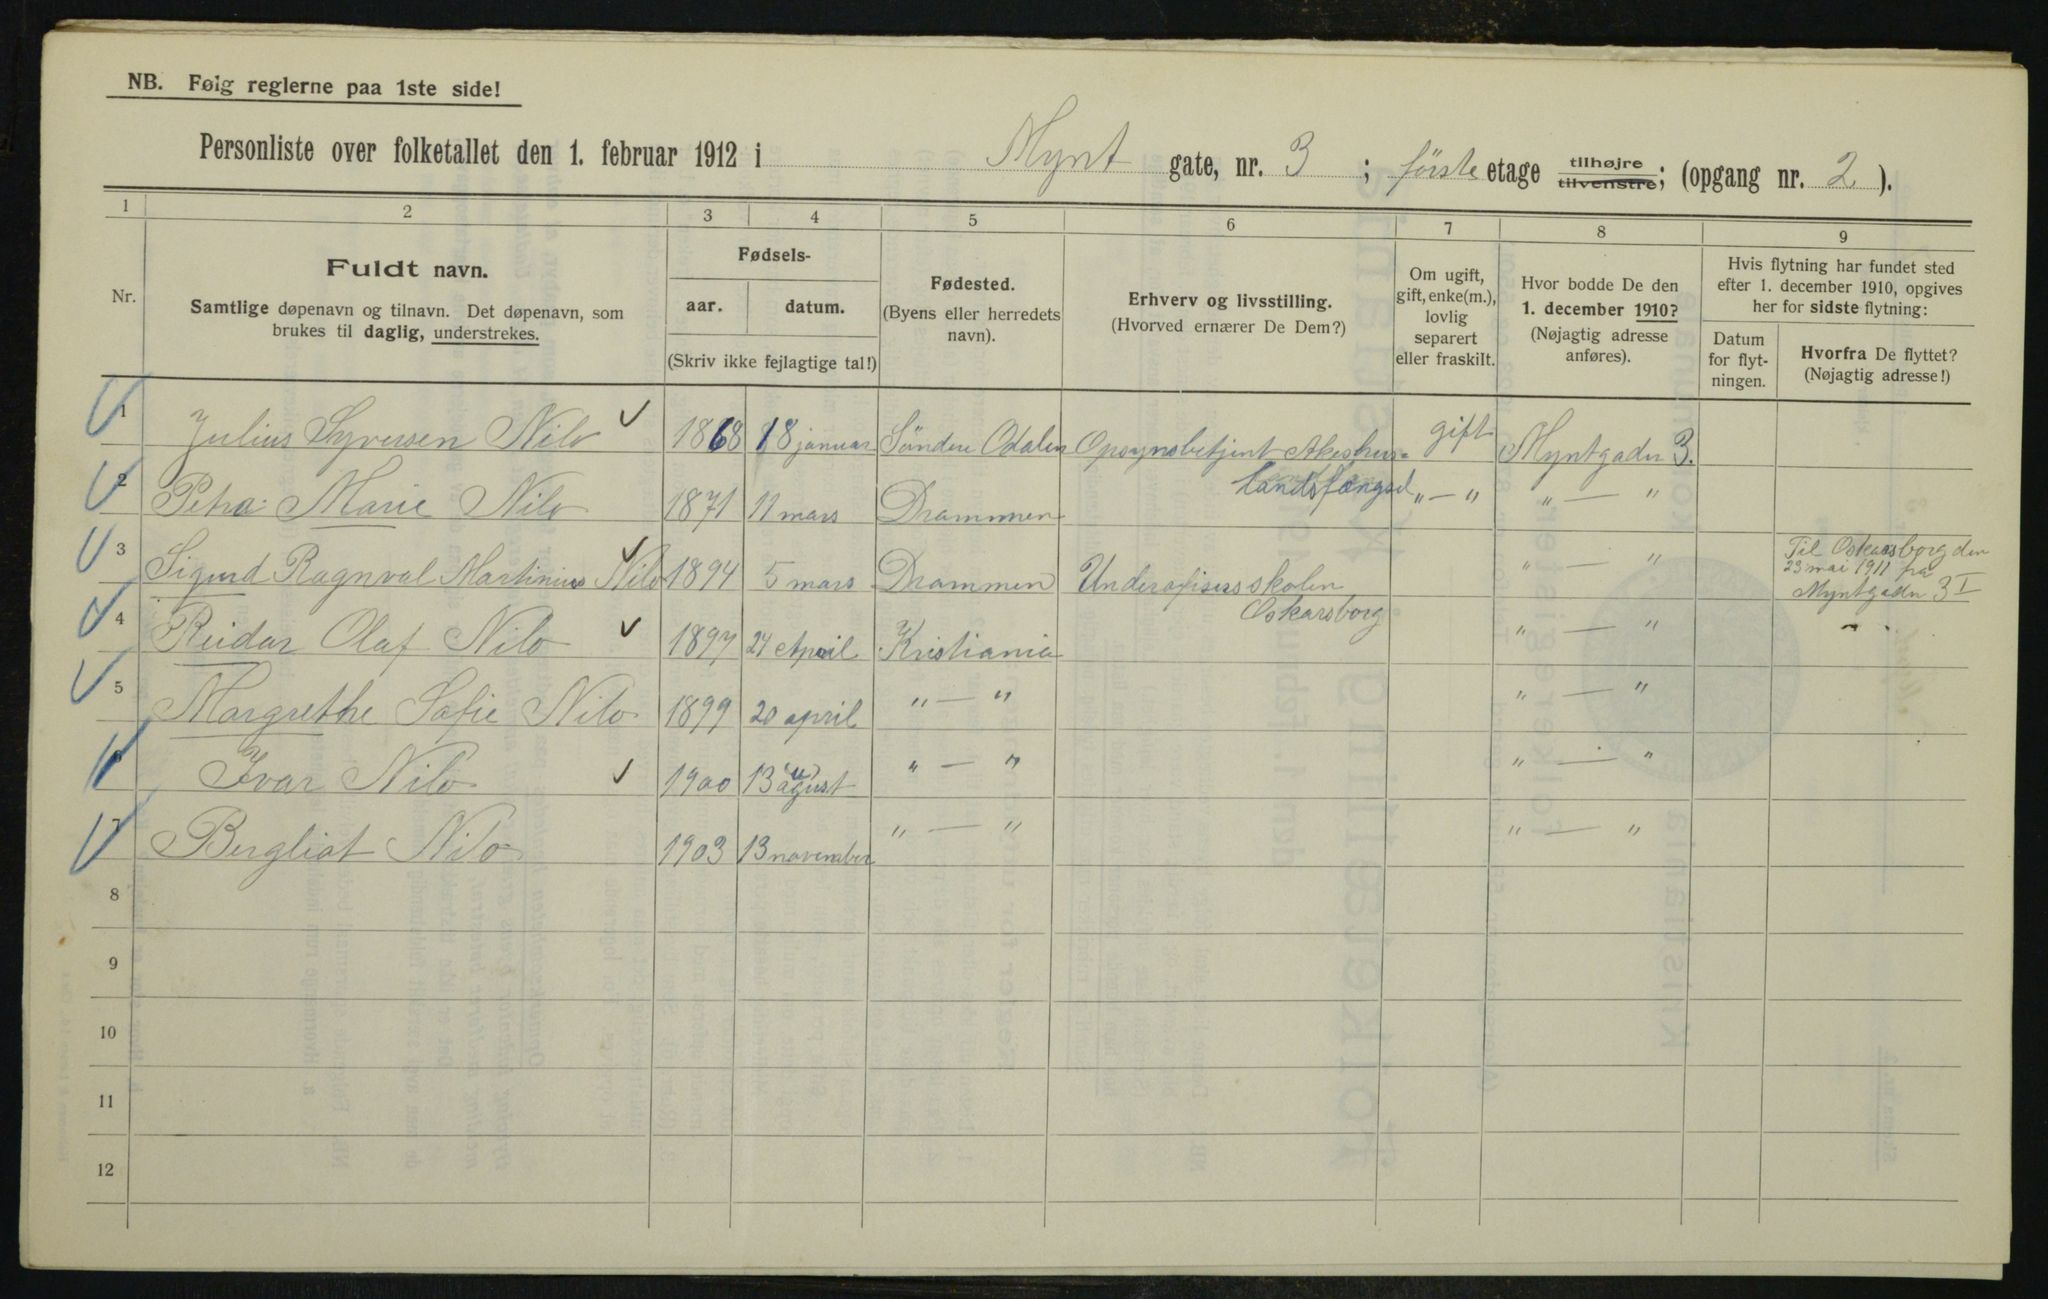 NB. Følg reglerne paa 1ste side!
Personliste over folketallet den 1. februar 1912 i Mynt gate, nr. 3 ; første etage tilhøjre tilvenstre; (opgang nr. 2 ).
1 2 3 4 5 6 7 8 9
Nr.
Fuldt navn.
Samtlige døpenavn og tilnavn. Det døpenavn, som
brukes til daglig, understrekes.
Fødsels-
aar. datum.
(Skriv ikke fejlagtige tal!)
Fødested.
(Byens eller herredets
navn).
Erhverv og livsstilling.
(Hvorved ernærer De Dem?)
Om ugift,
gift, enke(m.),
lovlig
separert
eller fraskilt.
Hvor bodde De den
1. december 1910?
(Nøjagtig adresse
anføres).
Hvis flytning har fundet sted
efter 1. december 1910, opgives
her for sidste flytning:
Datum
for flyt-
ningen.
Hvorfra De flyttet?
(Nøjagtig adresse!)
1 Julius Syversen Nilo 1868 18 januar Søndre Odalen Opsynsbetjent Akershus gift Myntgaden 3.
Landsfængsel
2 Petra Marie Nilo 1871 11 mars Drammen " — " " — "
3 Sigurd Ragnval Martinius Nilo 1894 5 mars Drammen Underofisersskolen " — " Til Oskarsborg den
Oskarsborg 23 mai 1911 fra
Myntgaden 3 I
4 Reidar Olaf Nilo 1897 24 April Kristiania " — "
5 Margrethe Sofie Nilo 1899 20 april " — " " — "
6 Ivar Nilo 1900 13 august " — " " — "
7 Bergliot Nilo 1903 13 november " — " " — "
8
9
10
11
12